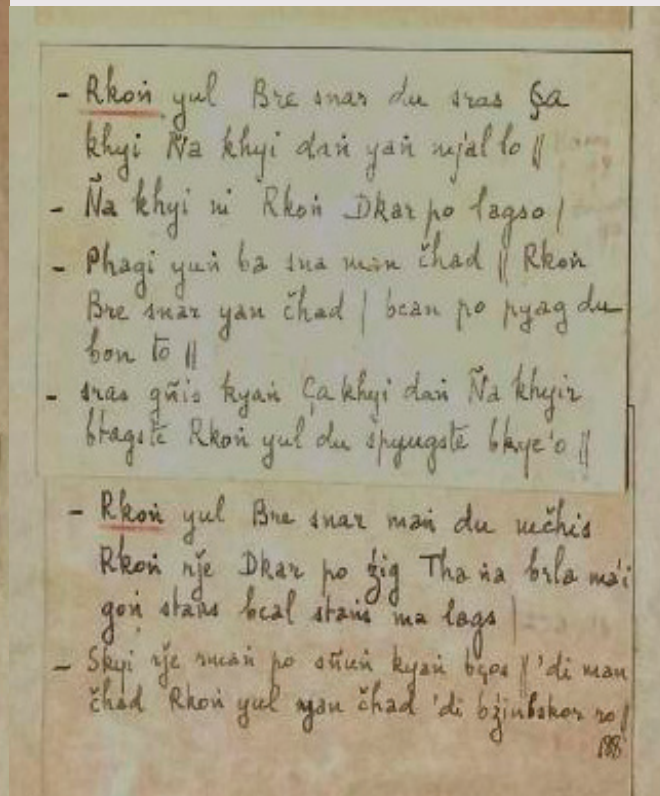 - Rkoṅ yul Bre snar du sras Ça
khyi Ña khyi daṅ yaṅ mjal to ||
- Ña khyi ni Rkoṅ Dkar po lagso |
- Phagi yuṅ ba sna man čhad || Rkoṅ
Bre snar yan čhad | bcan po pyag du
bon to ||
- sras gñis kyaṅ Ça khyi daṅ Ña khyir
btagste Rkoṅ yul du spyugste bkye'o ||
- Rkoṅ yul Bre snar maṅ du mčhis
Rkoṅ rǰe Dkar po źig Tha ña brla ma'i
goṅ staṅs bcal staṅs ma lags |
- Skyi rǰe rmaṅ po sñuṅ kyaṅ bços || 'di man
čhad Rkoṅ yul yan čhad 'di bźinbskor ro ||
188